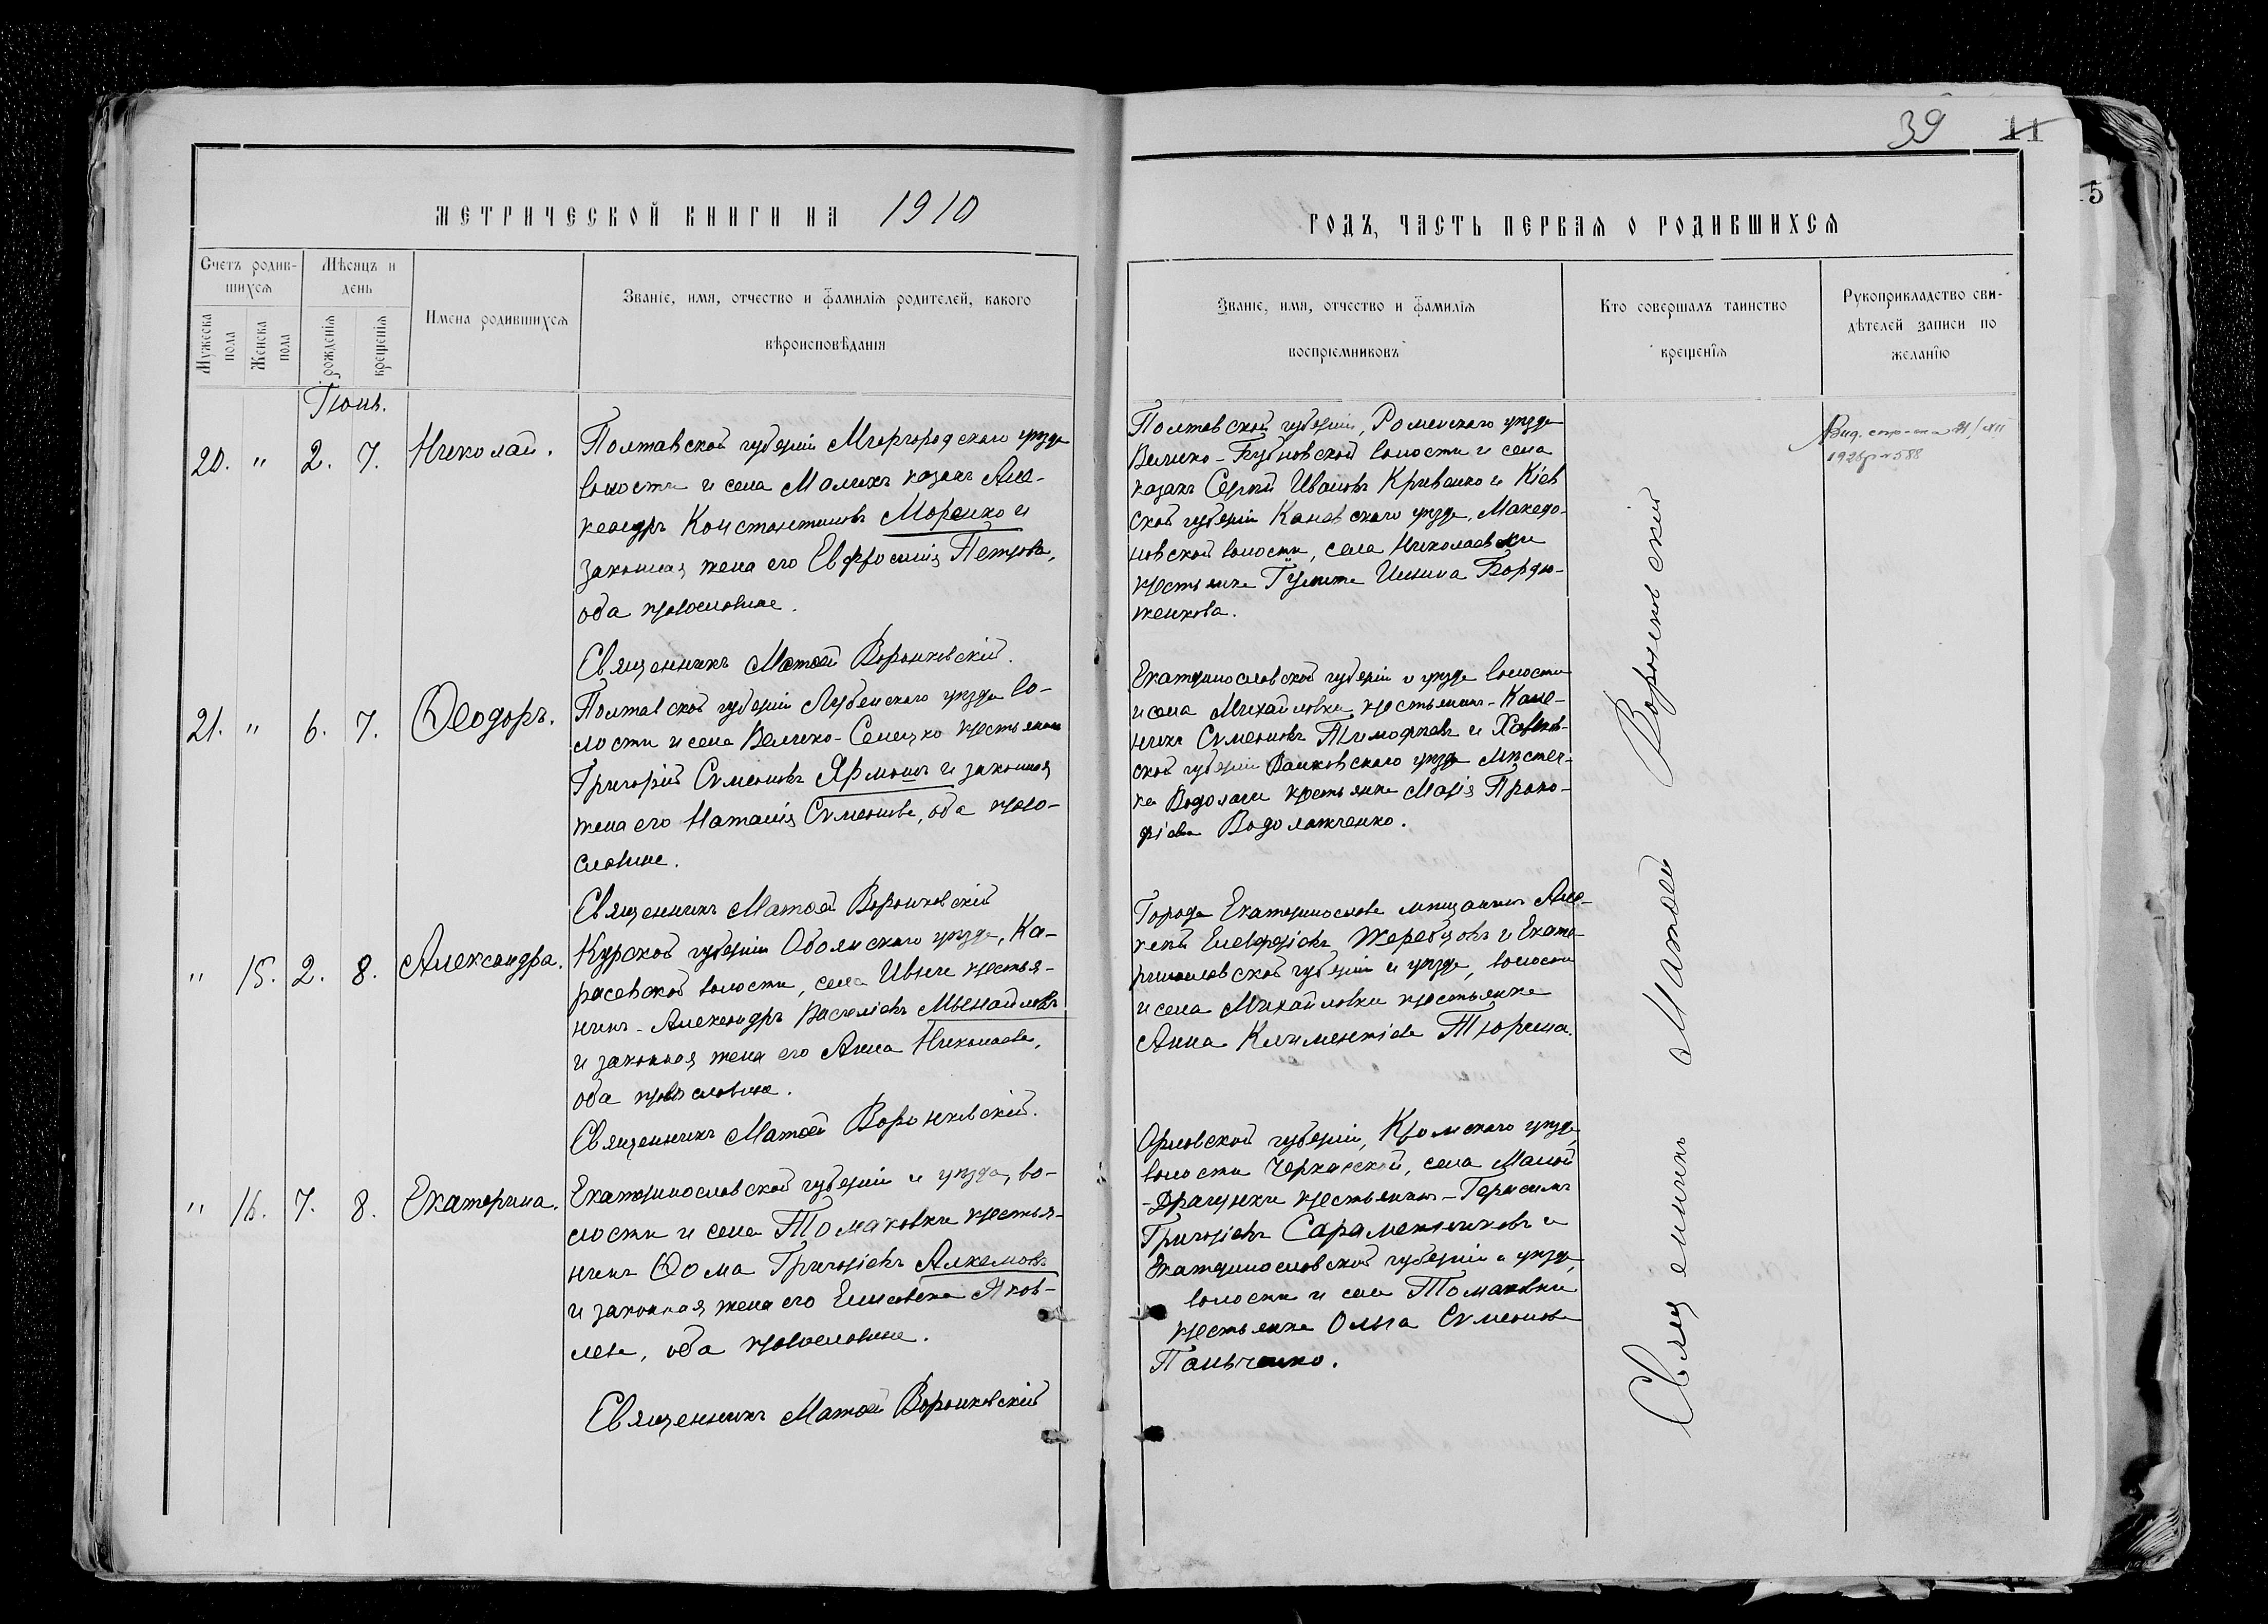 39 11
5
МЕТРИЧЕСКОЙ КНИГИ НА 1910
ГОДЪ, ЧАСТЬ ПЕРВАЯ О РОДИВШИХСЯ
Счетъ родив-
шихся
Мѣсяцъ и
день
Мужеска
пола
Женска
пола
рожденія
крещенія
Имена родившихся
Званіе, имя, отчество и фамилія родителей, какого
вѣроисповѣданія
Званіе, имя, отчество и фамилія
воспріемниковъ
Кто совершалъ таинство
крещенія
Рукоприкладство сви-
дѣтелей записи по
желанію
Іюнь.
20. " 2. 7. Николай.
Полтавской губерніи Миргородскаго уѣзда
волости и села казакъ Але-
ксандръ Константиновъ Моренко и
законная жена его Евфросинія Петрова,
оба православные.
Священникъ Матѳей Воронковскій.
Полтавской губерніи, Роменскаго уѣзда
Велико-Бубновской волости и села
казакъ Сергій Ивановъ Кривенко и Кіев
ской губерніи Каневскаго уѣзда, Македо-
новской волости, села Николаевки
крестьянка Іулитта Бордю-
женкова.
21. " 6. 7. Ѳеодоръ.
Полтавской губерніи Лубенскаго уѣзда во-
лости и села Велико-Селецко крестьянинъ
Григорій Сѵмеоновъ Ярмошъ и законная
жена его Наталія Сѵмеонова, оба право-
славные.
Священникъ Матѳей Воронковскій
Екатеринославской губерніи и уѣзда волости
и села Михайловки крестьянинъ-Каме-
нщикъ Сѵмеоновъ Тимофѣевъ и Харьков-
ской губерніи Валковскаго уѣзда мѣстеч-
ка Водолаги крестьянка Марія Проко-
фіева Водолажченко.
" 15. 2. 8. Александра.
Курской губерніи Обоянскаго уѣзда, Ка-
расевской волости, села Ивни крестья-
нинъ-Александръ Василіевъ
и законная жена его Анна Николаева,
оба православные.
Священникъ Матѳей Воронковскій.
Города Екатеринослава мѣщанинъ Але-
ксѣй Елевферіевъ Жеребцовъ и Екате-
ринославской губерніи и уѣзда, волости
и села Михайловки крестьянка
Анна Климентіева Тюрина.
" 16. 7. 8. Екатерина.
Екатеринославской губерніи и уѣзда, во-
лости и села Томаковки крестья-
нинъ Ѳома Григоріевъ Алкемовъ
и законная жена его Елисавета Яков-
лева, оба православные.
Священникъ Матѳей Воронковскій
Орловской губерніи, Кромскаго уѣзда,
волости Черкасской, села Малой
-Драгунки крестьянинъ-Герасимъ
Григоріевъ и
Екатеринославской губерніи и уѣзда,
волости и села Томаковки
крестьянка Ольга Сѵмеонова
Панченко.
Священникъ Матѳей Воронковскій
1928р № 588